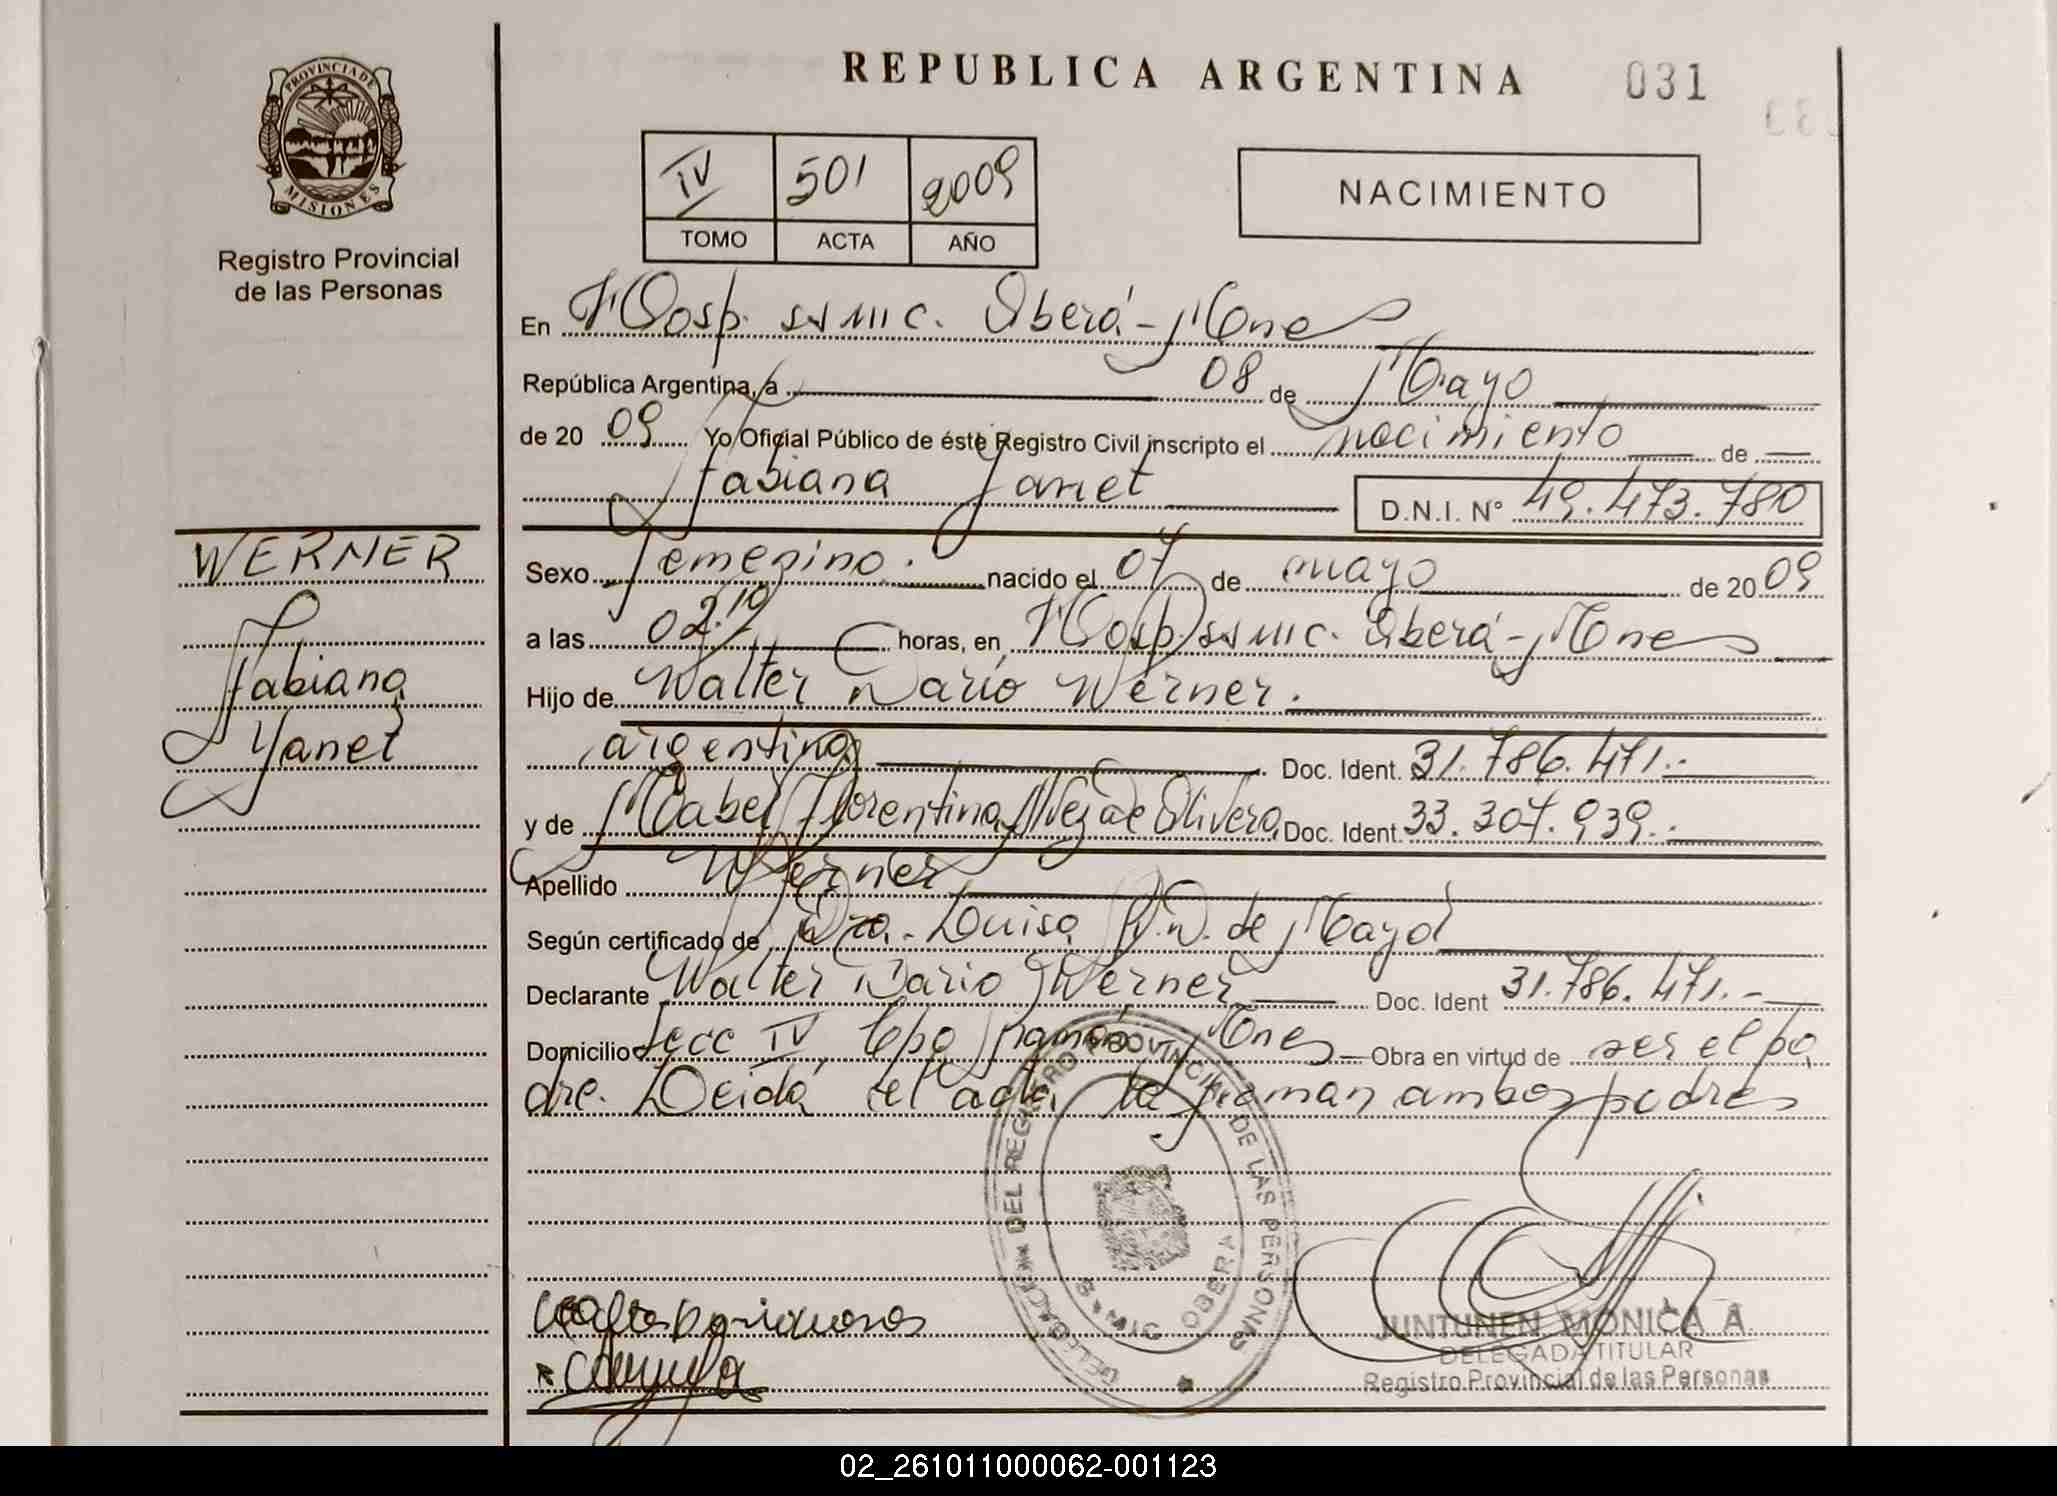 REPUBLICA ARGENTINA 031
PROVINCIA DE
MISIONES
Registro Provincial
de las Personas
IV 501 2009
TOMO ACTA AÑO
NACIMIENTO
En Hosp. SS MIC. Oberá-Mnes
República Argentina, a 08 de Mayo
de 20 09 Yo Oficial Público de éste Registro Civil inscripto el nacimiento de
Fabiana Janet D.N.I. N° 49.473.780
WERNER
Fabiana
Yanet
Sexo Femenino. nacido el 07 de mayo de 20 09
a las 02.10 horas, en Hosp. SS MIC. Oberá-Mnes
Hijo de Walter Dario Werner.
argentino Doc. Ident. 31.786.471.-
y de Mabel Florentina Alvez de Olivera Doc. Ident. 33.307.939.-
Apellido Werner
Según certificado de Dra. Luisa de Mayol
Declarante Walter Dario Werner Doc. Ident 31.786.471.-
Domicilio Secc IV, Cpo Ramón Mnes Obra en virtud de ser el pa
dre. Leida el acta la firman ambos padres
DELEGACION DEL REGISTRO PROVINCIAL DE LAS PERSONAS
OBERA
JUNTUNEN MONICA A.
DELEGADA TITULAR
Registro Provincial de las Personas
02_261011000062-001123